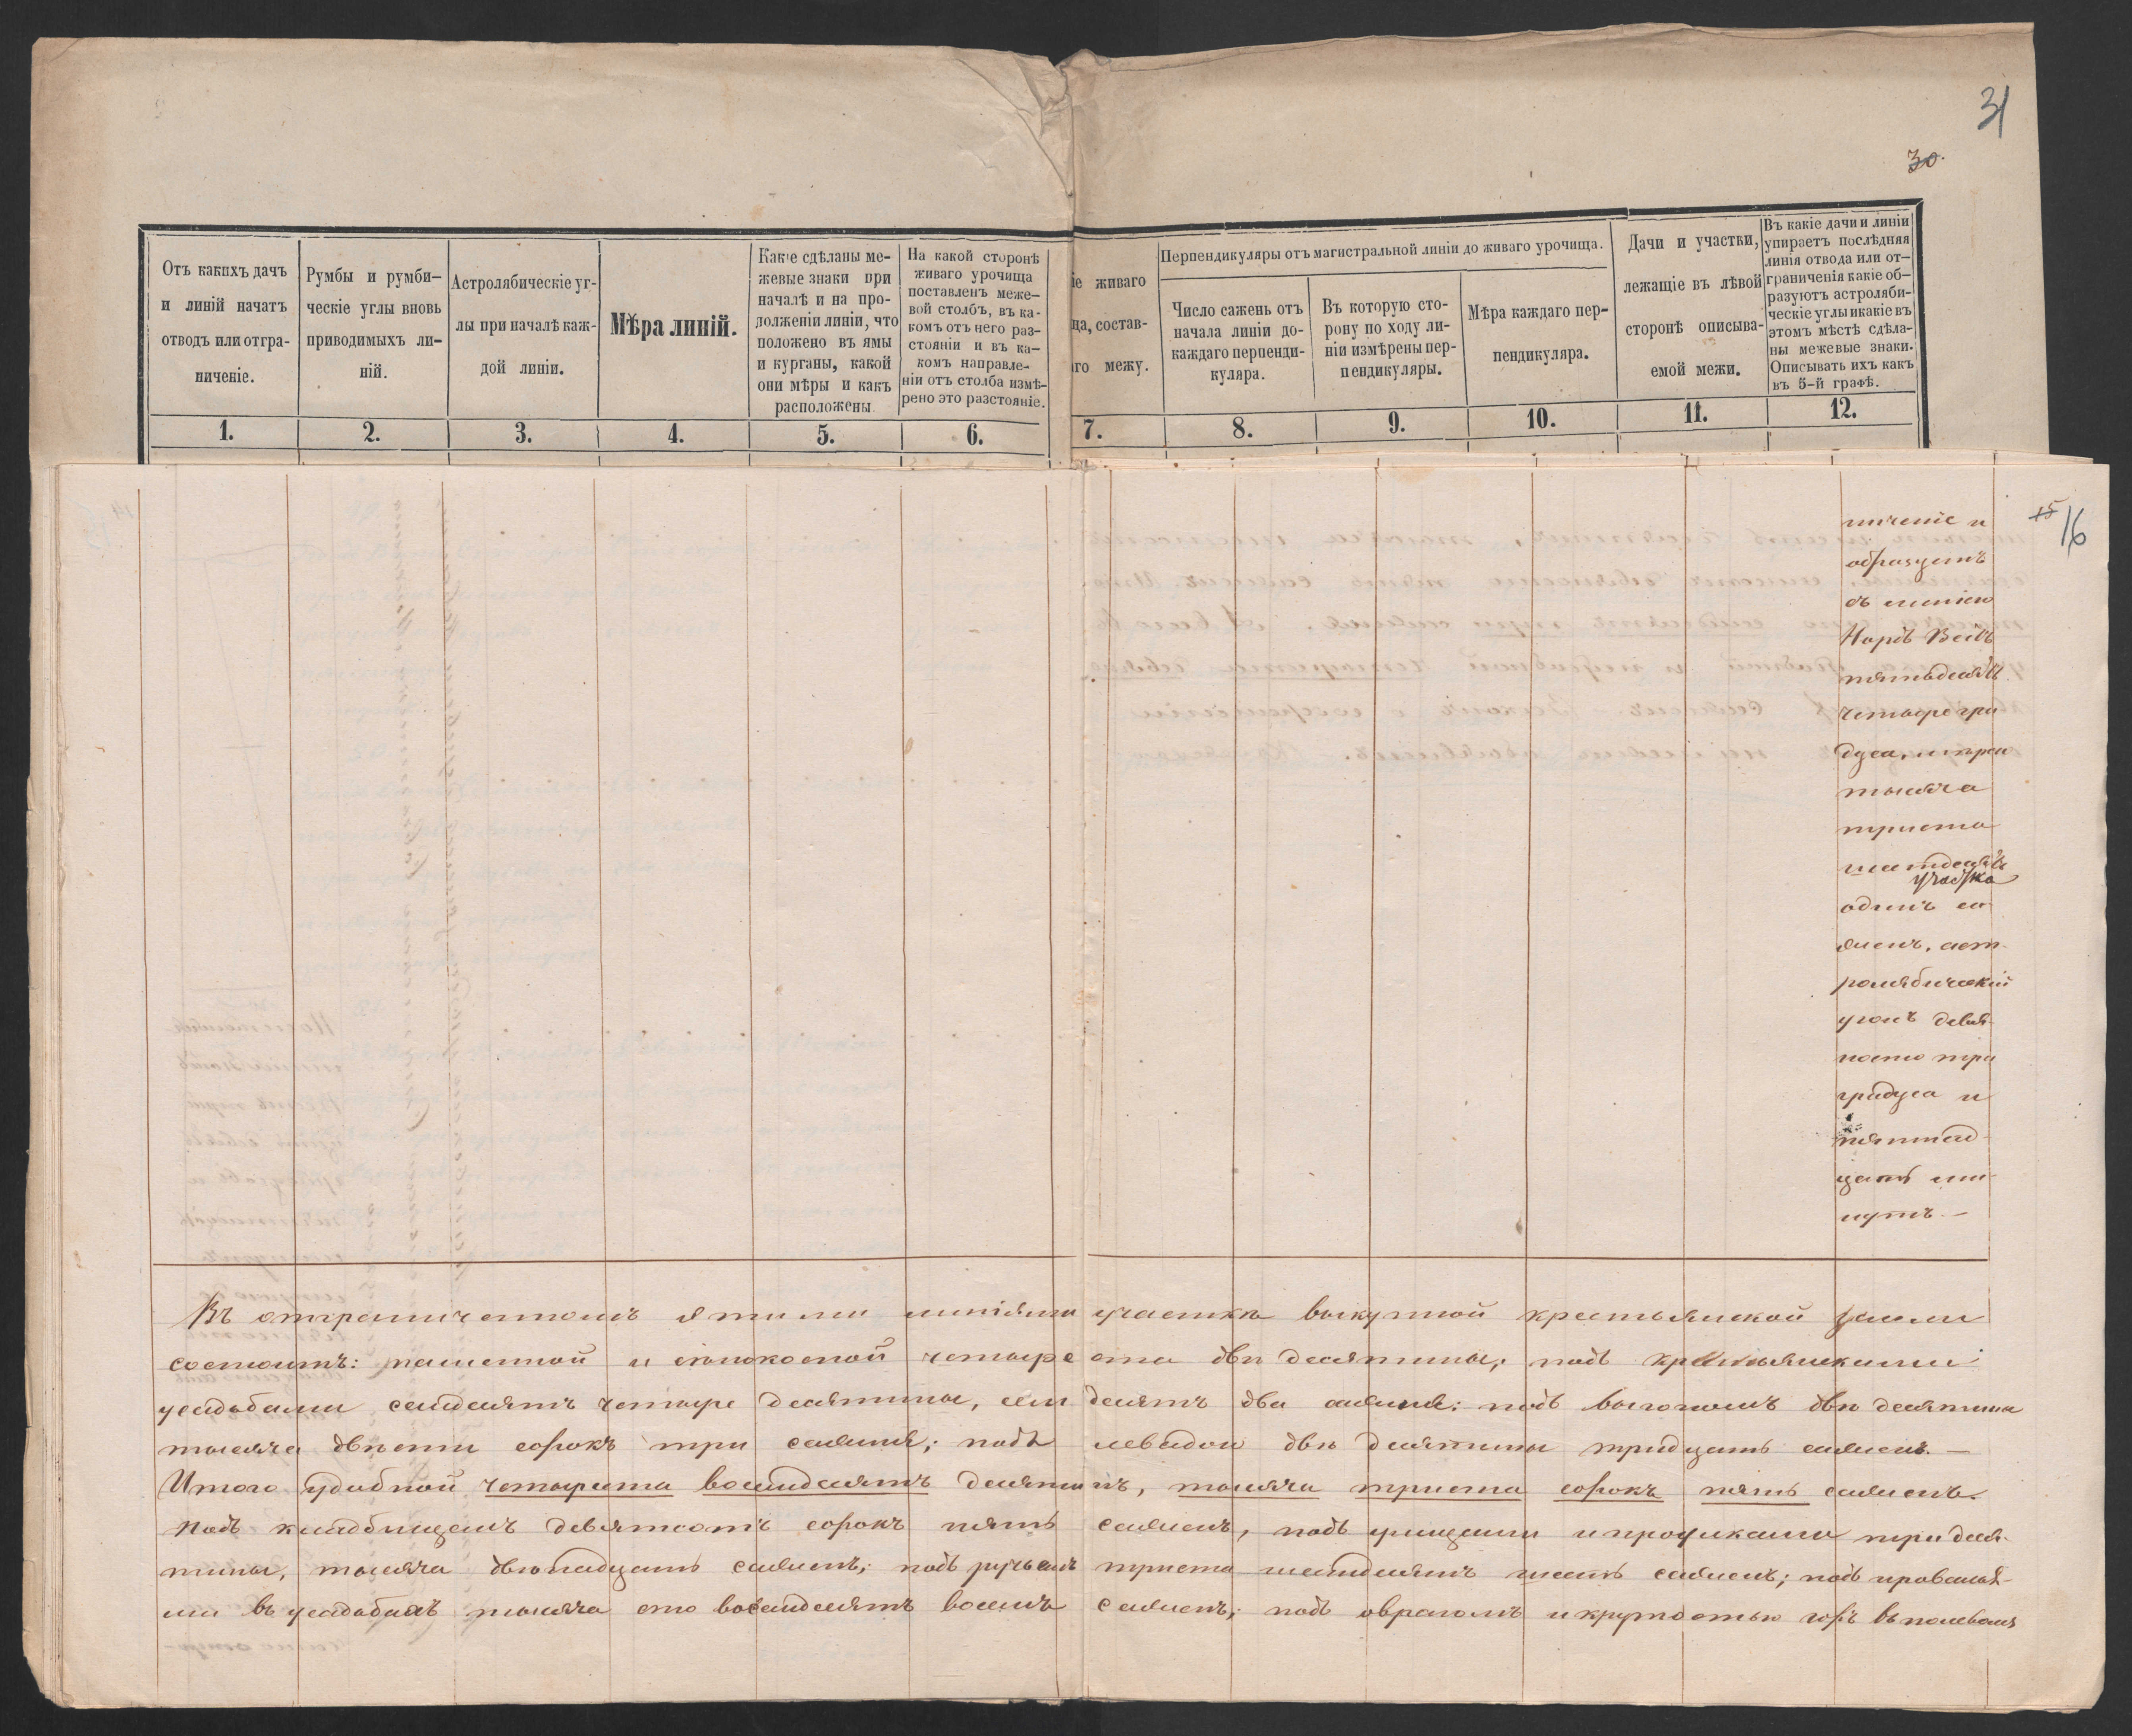 31
30
Отъ какихъ дачъ
и линій начатъ
отводъ или отгра-
ниченіе.
Румбы и румби-
ческіе углы вновь
приводимыхъ ли-
ній.
Астролябическіе уг-
лы при началѣ каж-
дой линіи.
Мѣра линій.
Какіе сдѣланы ме-
жевые знаки при
началѣ и на про-
долженіи линіи, что
положено въ ямы
и курганы, какой
они мѣры и какъ
расположены
На какой сторонѣ
живаго урочища
поставленъ меже-
вой столбъ, въ ка-
комъ отъ него раз-
стояніи и въ ка-
комъ направле-
ніи отъ столба измѣ-
рено это разстояніе.
іе живаго
ща, состав-
го межу.
Перпендикуляры отъ магистральной линіи до живаго урочища.
Число сажень отъ
начала линіи до-
каждаго перпенди-
куляра.
Въ которую сто-
рону по ходу ли-
ніи измѣрены пер-
пендикуляры.
Мѣра каждаго пер-
пендикуляра.
Дачи и участки,
лежащіе въ лѣвой
сторонѣ описыва-
емой межи.
Въ какіе дачи и линіи
упираетъ послѣдняя
линія отвода или от-
граниченія какіе об-
разуютъ астроляби-
ческіе углы и какіе въ
этомъ мѣстѣ сдѣла-
ны межевые знаки.
Описывать ихъ какъ
въ 5-й графѣ.
1. 2. 3. 4. 5. 6. 7. 8. 9. 10. 11. 12.
15 16
ниченіе и
образуетъ
съ линіею
Нордъ Вестъ
пятьдесятъ
четыре гра
дуса, мѣрою
тысяча
триста
шестдесятъ
участка
одинъ са
жень, аст-
ролябическій
уголъ девя-
носто три
градуса и
пятнад-
цать ми-
нутъ. —
Въ отграниченномъ этими линіями участкѣ выкупной крестьянской земли
состоитъ: пашенной и сѣнокосной четыреста двѣ десятины, подъ крестьянскими
усадьбами семдесятъ четыре десятины, семдесятъ два сажня; подъ выгономъ двѣ десятины
тысяча двѣсти сорокъ три сажня; подъ левадою двѣ десятины тридцать сажень. —
Итого удобной четыреста восемдесятъ десятинъ, тысяча триста сорокъ пять сажень.
Подъ кладбищемъ девятсотъ сорокъ пять сажень, подъ улицами и проулками три деся-
тины, тысяча двѣнадцать сажень; подъ ручьемъ триста шестдесятъ шесть сажень; подъ провалья-
ми въ усадьбахъ тысяча сто восемдесятъ восемь сажень; подъ оврагомъ и крутостью горъ въ полевомъ